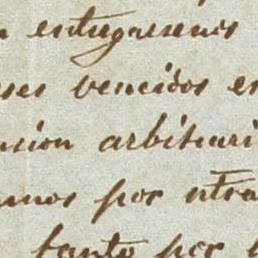 entregasemos
ses vencidos en
nsion arbitrari
amos por ntra
tanto por